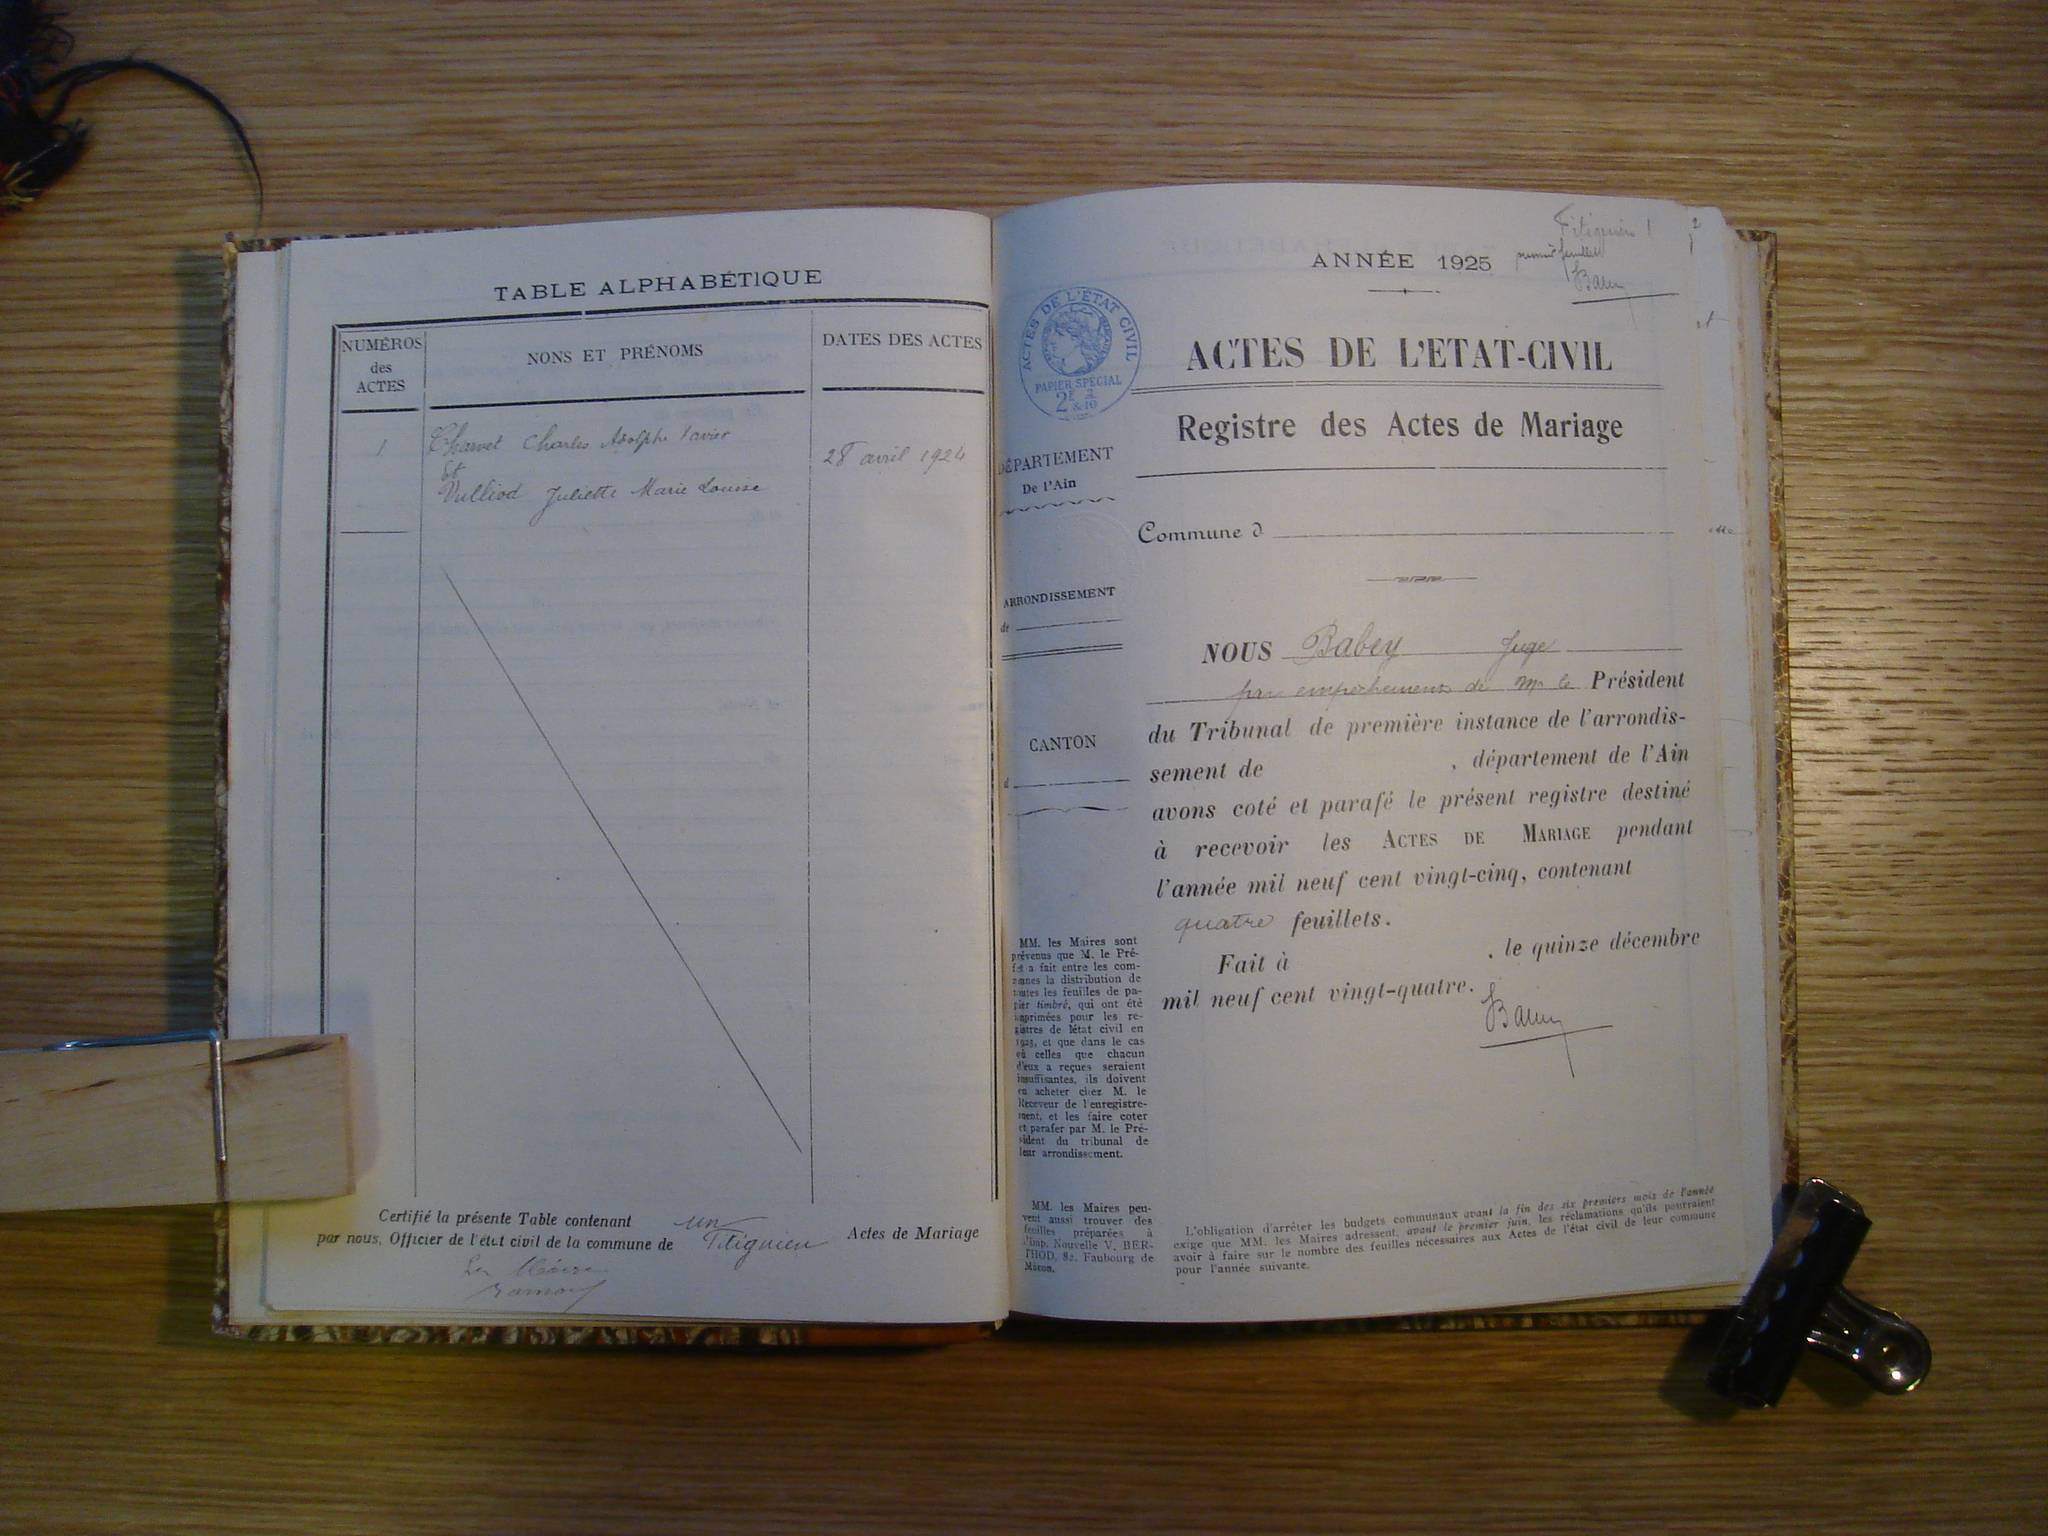 TABLE ALPHABÉTIQUE
NUMÉROS
des
ACTES
NONS ET PRÉNOMS
DATES DES ACTES
1
Charvet Charles Adolphe Xavier
et
Vulliod Juliette Marie Louise
28 avril 1924
Certifié la présente Table contenant un Actes de Mariage
par nous, Officier de l'état civil de la commune de Fitignieu
Le Maire
Fitignieu 1
2
premier feuillet
ANNÉE 1925
ACTES DE L'ÉTAT CIVIL
PAPIER SPÉCIAL
2F
&10
ACTES DE L'ETAT-CIVIL
Registre des Actes de Mariage
DÉPARTEMENT
De l'Ain
Commune d
ARRONDISSEMENT
de
CANTON
d
NOUS Babey Juge
par empêchement de Mr le Président
du Tribunal de première instance de l'arrondis-
sement de , département de l'Ain
avons coté et parafé le présent registre destiné
à recevoir les ACTES DE MARIAGE pendant
l'année mil neuf cent vingt-cinq, contenant
quatre feuillets.
Fait à , le quinze décembre
mil neuf cent vingt-quatre.
MM. les Maires sont
prévenus que M. le Pré-
fet a fait entre les com-
munes la distribution de
toutes les feuilles de pa-
pier timbré, qui ont été
imprimées pour les re-
gistres de létat civil en
1925, et que dans le cas
où celles que chacun
d'eux a reçues seraient
insuffisantes, ils doivent
en acheter chez M. le
Receveur de l'enregistre-
ment, et les faire coter
et parafer par M. le Pré-
sident du tribunal de
leur arrondissement.
MM. les Maires peu-
vent aussi trouver des
feuilles préparées à
l'imp. Nouvelle V. BER-
THOD, 82. Faubourg de
Mâcon.
L'obligation d'arrêter les budgets communaux avant la fin des six premiers mois de l'année
exige que MM. les Maires adressent, avant le premier juin, les réclamations qu'ils pourraient
avoir à faire sur le nombre des feuilles nécessaires aux Actes de l'état civil de leur commune
pour l'année suivante.